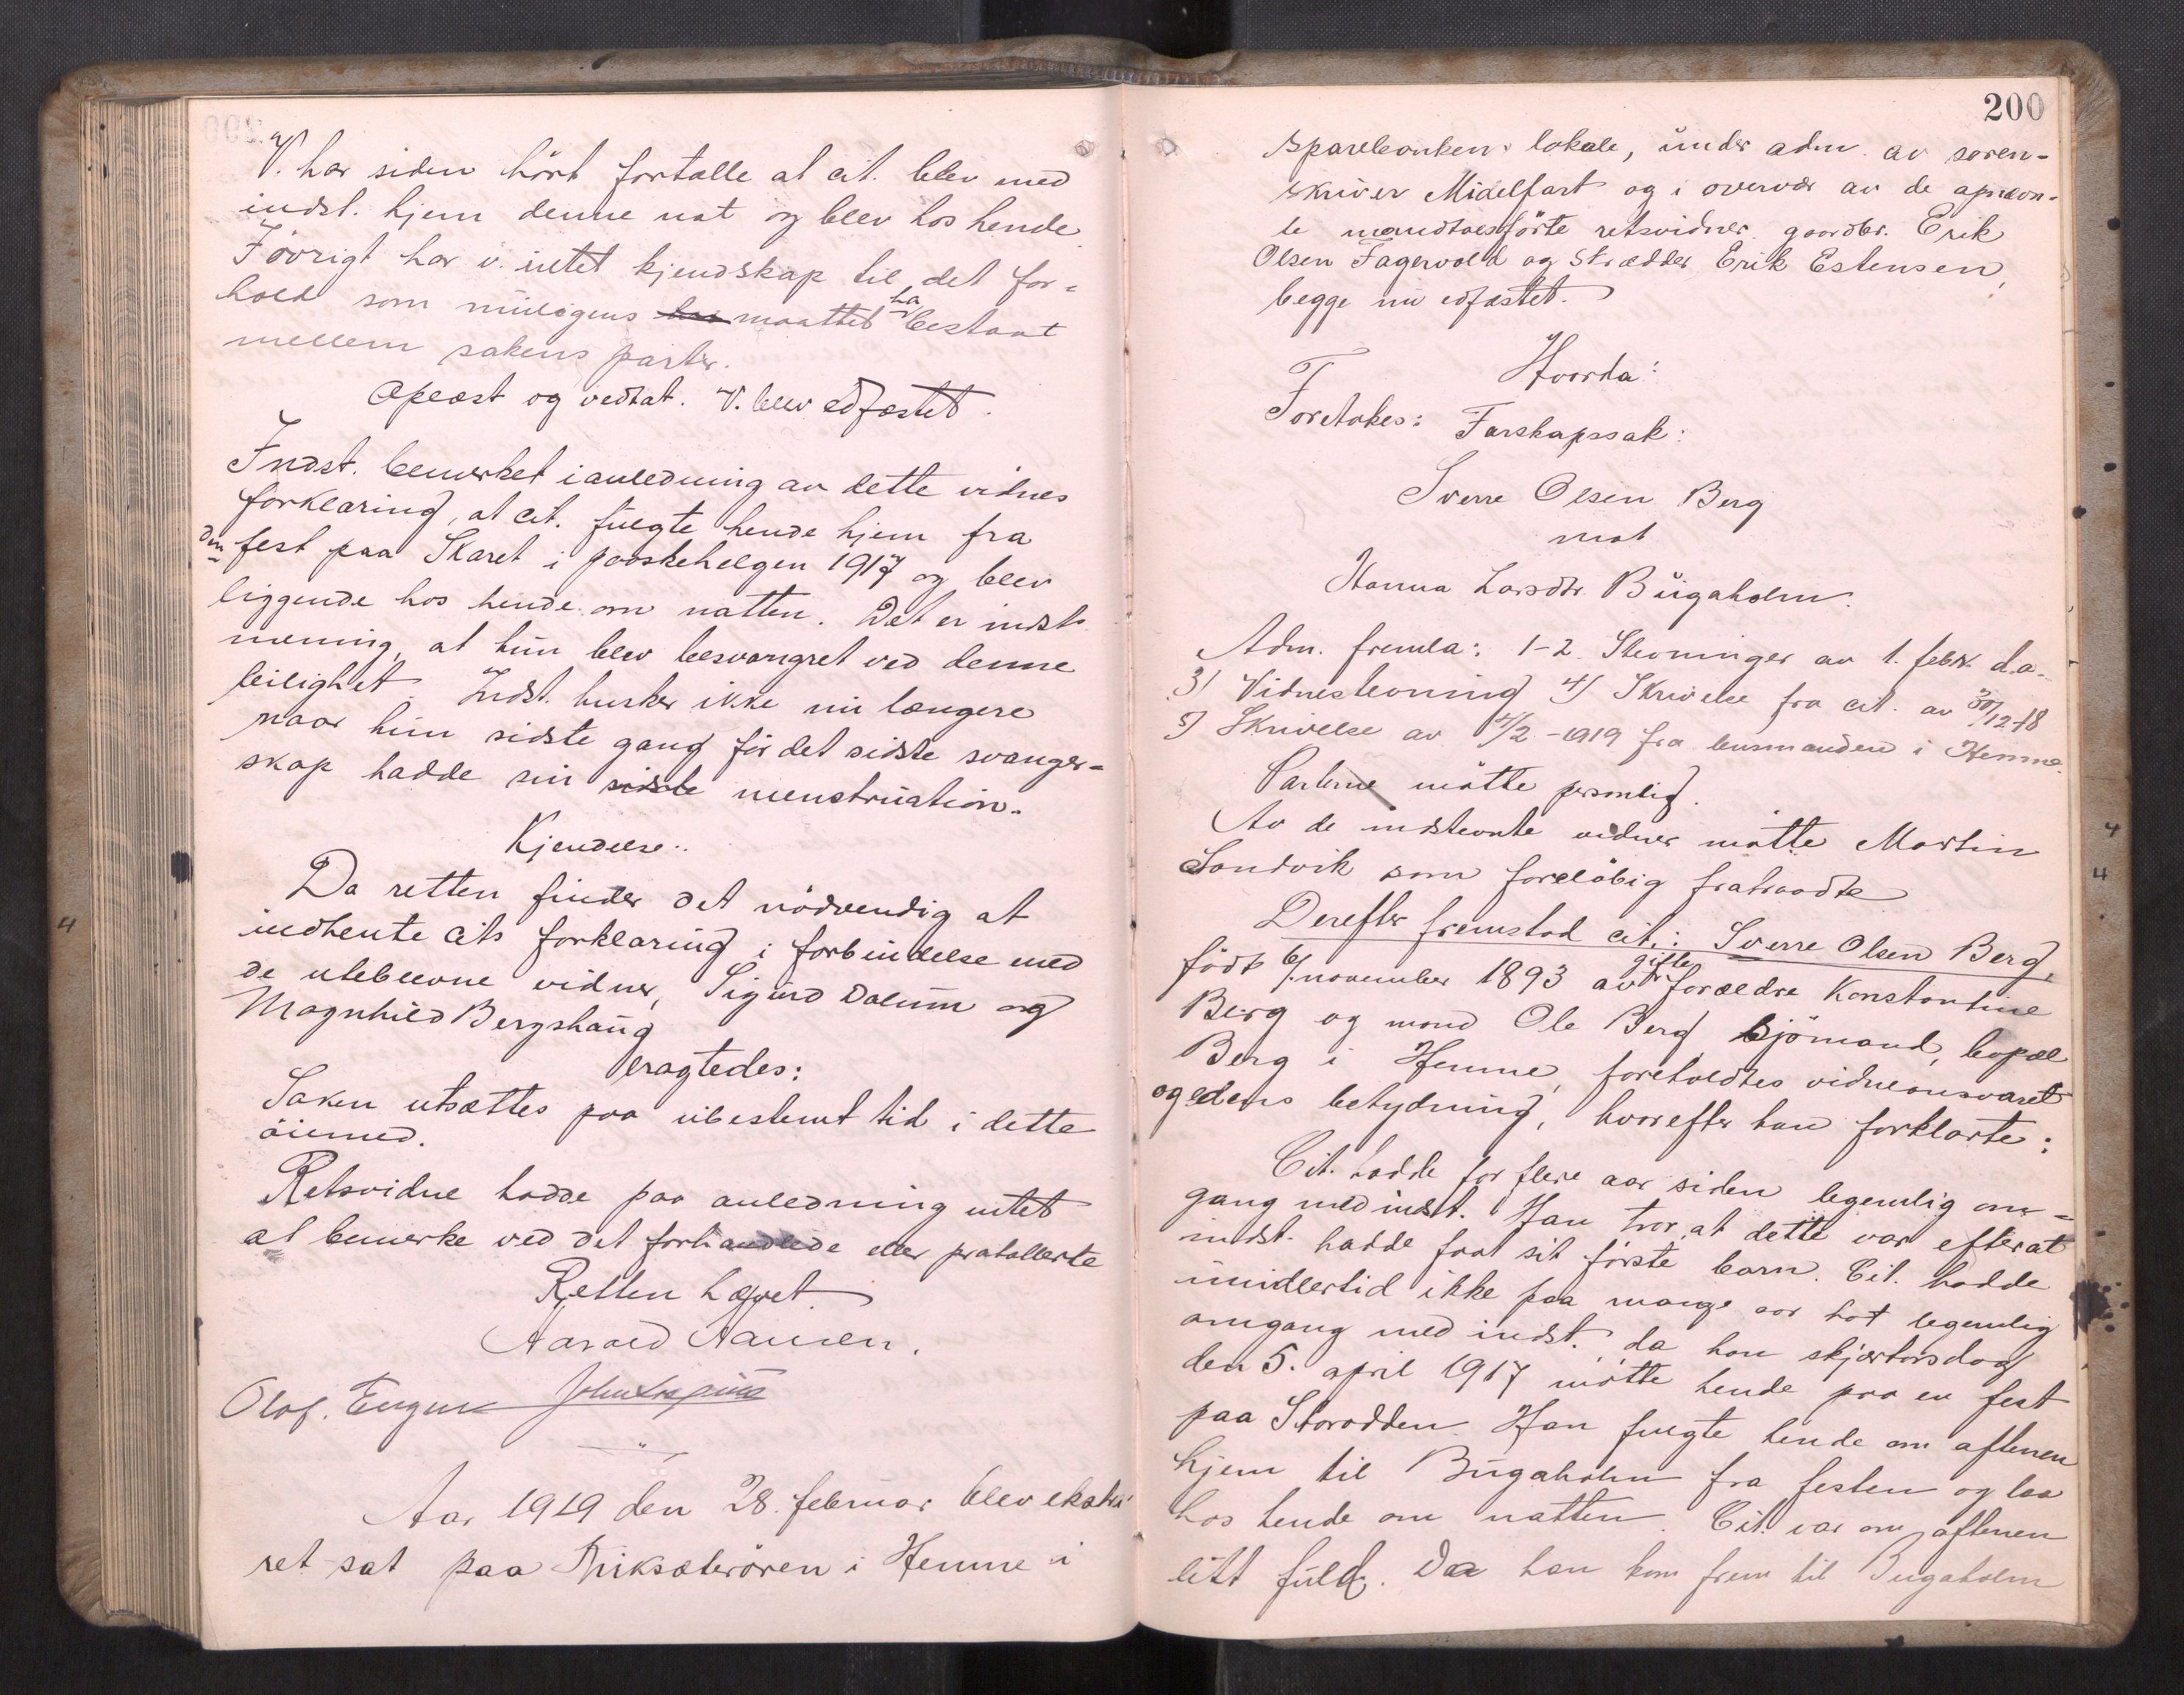 V. har siden hört fortælle at cit. blev med
indst. hjem denne nat og blev hos hende.
Iövrigt har v. intet kjendskap til det for=
hold som muligens har maattet ha bestaat
mellem sakens parter.
Oplæst og vedtat. V. blev edfæstet.
Indst. bemerket i anledning av dette vidnes
forklaring, at cit. fulgte hende hjem fra
den fest paa Skaret i paaskehelgen 1917 og blev
liggende hos hende om natten. Det er indst.
mening, at hun blev besvangret ved denne
leilighet. Indst. husker ikke nu længere
naar hun sidste gang för det sidste svanger=
skap hadde sin sidste menstruation.
Kjendelse:
Da retten finder det nödvendig at
indhente cits forklaring i forbindelse med
de uteblevne vidner, Sigurd Dalum og
Magnhild Bergshaug
eragtedes:
Saken utsættes paa ubestemt tid i dette
öiemed.
Retsvidne hadde paa anledning intet
at bemerke ved det forhandlede eller protollerte
Retten hævet.
Harald Hansen.
Olaf. Eugen
Aar 1919 den 28. februar blev ekstra
ret sat paa i Hemne i
200
Sparebankens lokale, under adm. av soren-
skriver Midelfart og i overvær av de opnævn-
te mandtalsförte retsvidner gaardbr. Erik
Olsen Fagervold og Skrædder Erik Estensen,
begge nu edfæstet.
Hvorda:
Foretokes: Farskapssak:
Sverre Olsen Berg
mot
Hanna Larsdtr. Bugaholm.
Adm. fremla: 1-2. Stevninger av 1. febr. d.a.
3) Vidnestevning 4) Skrivelse fra cit. av 30/12-18
5) Skrivelse av 4/2-1919 fra lensmanden i Hemne.
Parterne mötte personlig.
Av de indstevnte vidner mötte Martin
Sandvik som foreløbig fratraadte
Derefter fremstod cit.: Sverre Olsen Berg,
födt 6/november 1893 av gifte forældre Konstantine
Berg og mand Ole Berg Sjömand, bopæl
Berg i Hemne, foreholdtes vidneansvaret
og edens betydning, hvorefter han forklarte:
Cit. hadde for flere aar siden legemlig om=
gang med indst. Han tror, at dette var efterat
indst. hadde faat sit förste barn. Cit. hadde
imidlertid ikke paa mange aar hat legemlig
omgang med indst., da han skjærtorsdag
den 5. april 1917 mötte hende paa en fest
paa Storodden. Han fulgte hende om aftenen
hjem til Bugaholm fra festen og laa
hos hende om natten. Cit. var om aftenen
litt fuld. Da han kom frem til Bugaholm